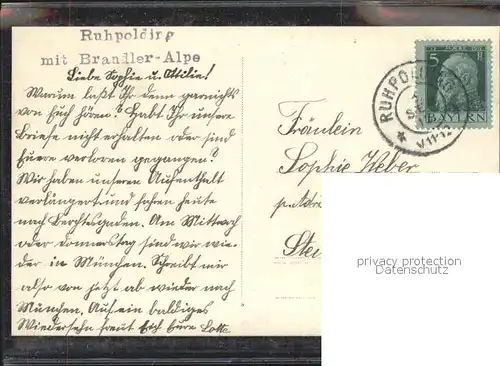 Ruhpolding
mit Brandler-Alpe
Liebe Sophie u. Ottilie!
Warum laßt Ihr denn garnichts
von Euch hören? Habt Ihr unsere
Briefe nicht erhalten oder sind
Euere verloren gegangen?
Wir haben unseren Aufenthalt
verlängert und fahren heute
nach Berchtesgaden. Am Mittwoch
oder Donnerstag sind wir wie-
der in München. Schreibt mir
also von jetzt ab wieder nach
München. Auf ein baldiges
Wiedersehn freut sich Eure Lotte
Fräulein
Sophie Keber
Stei
5
BAYERN
RUHPOLDING
privacy protection
Datenschutz